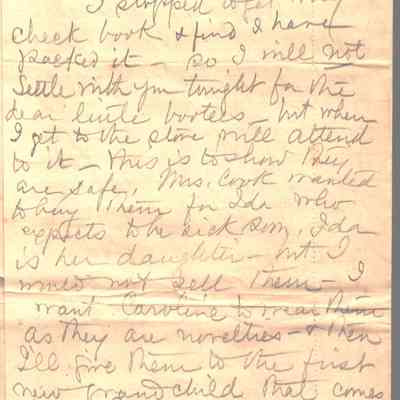 I stopped to get my
check book & find I have
packed it – so I will not
settle with you tonight for the
dear little bootees – but when
I get to the store will attend
to it – this is to show they
are safe. Mrs. Cook wanted
to buy them for Ida who
expects to be sick soon, Ida
is her daughter – but I
would not sell them – I
want Caroline to wear them
as they are novelties – & then
I'll give them to the first
new grandchild that comes